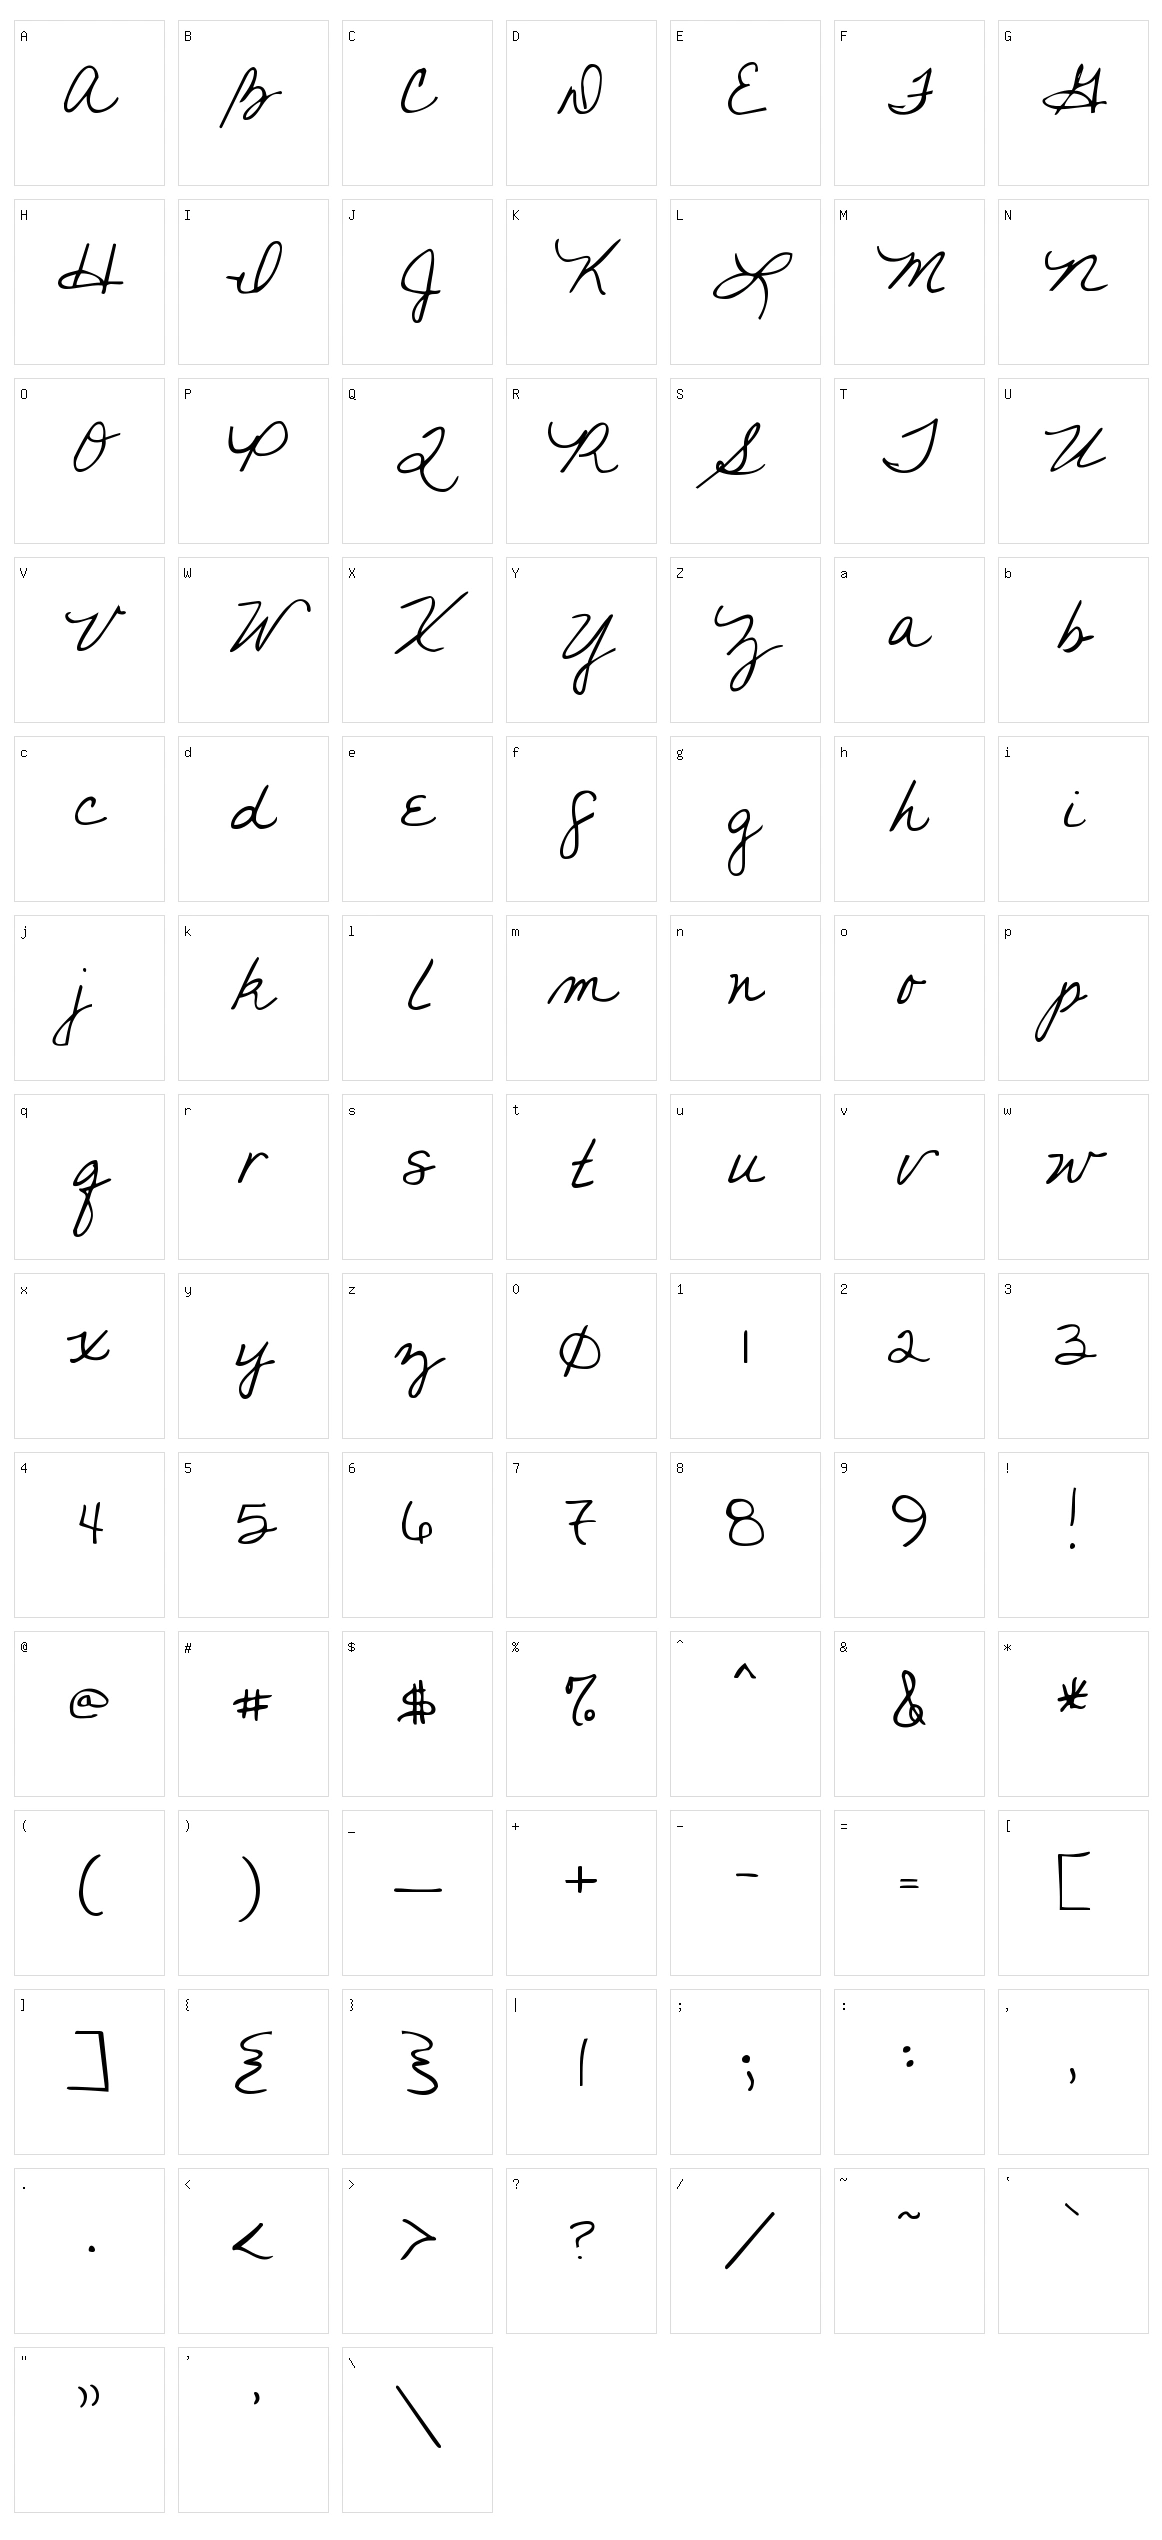 A B C D E F G
A B C D E F G
H I J K L M N
H I J K L M N
O P Q R S T U
O P Q R S T U
V W X Y Z a b
V W X Y Z a b
c d e f g h i
c d e f g h i
j k l m n o p
j k l m n o p
q r s t u v w
q r s t u v w
x y z 0 1 2 3
x y z 0 1 2 3
4 5 6 7 8 9 !
4 5 6 7 8 9 !
@ # $ % ^ & *
@ # $ % ^ & *
( ) _ + - = [
( ) _ + - = [
] { } | ; : ,
] { } | ; : ,
. < > ? / ~ `
. < > ? / ~ `
" ' \
" ' \